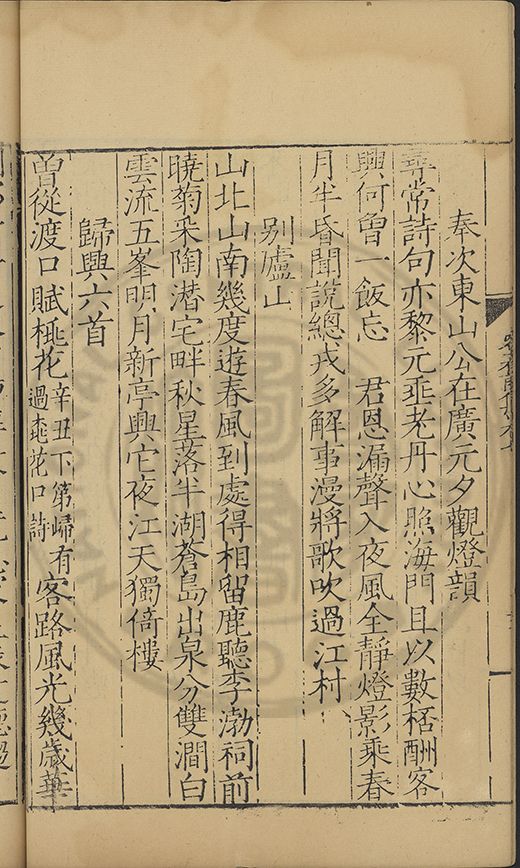 奉次東山公在廣元夕觀燈韻
尋常詩句亦黎元垂老丹心照海門且以數桮酬客
興何曾一飯忘　君恩漏聲入夜風全靜燈影乘春
月半昏聞說總戎多解事漫將歌吹過江村
别廬山
山北山南幾度遊春風到處得相留鹿聽李渤祠前
曉菊采陶潜宅畔秋星落半湖蒼島出泉分雙澗白
雲流五峯明月新亭興它夜江天獨倚樓
歸興六首
曾從渡口賦桃花辛丑下第歸有過桃花口詩客路風光幾歲華